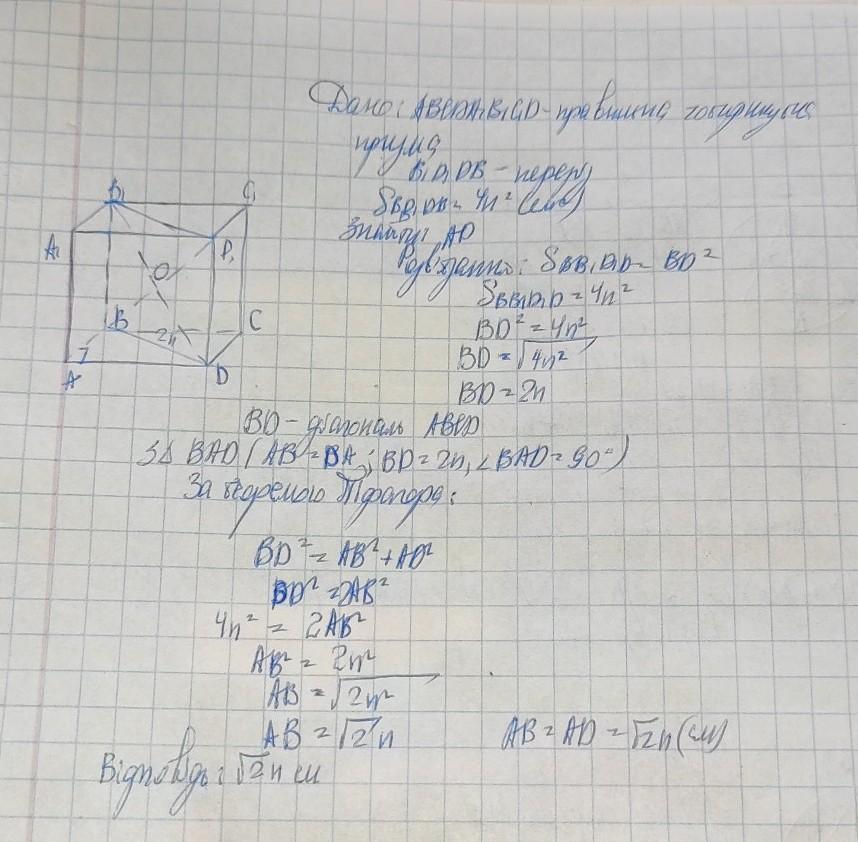 Дано: ABCDA₁B₁C₁D - правильна чотирикутна
призма
B₁D₁DB - переріз
S BB₁DB = 4n² (см²)
Знайти: AD
Розв'язання: S BB₁D₁D = BD²
S BB₁D₁D = 4n²
BD² = 4n²
BD = √4n²
BD = 2n
B₁
C₁
A₁
D₁
O
B
2n
C
A
D
BD - діагональ ABCD
З Δ BAD (AB = DA; BD = 2n, ∠BAD = 90°)
За теоремою Піфагора:
BD² = AB² + AD²
BD² = 2AB²
4n² = 2AB²
AB² = 2n²
AB = √2n²
AB = √2 n
AB = AD = √2 n (см)
Відповідь: √2 n см